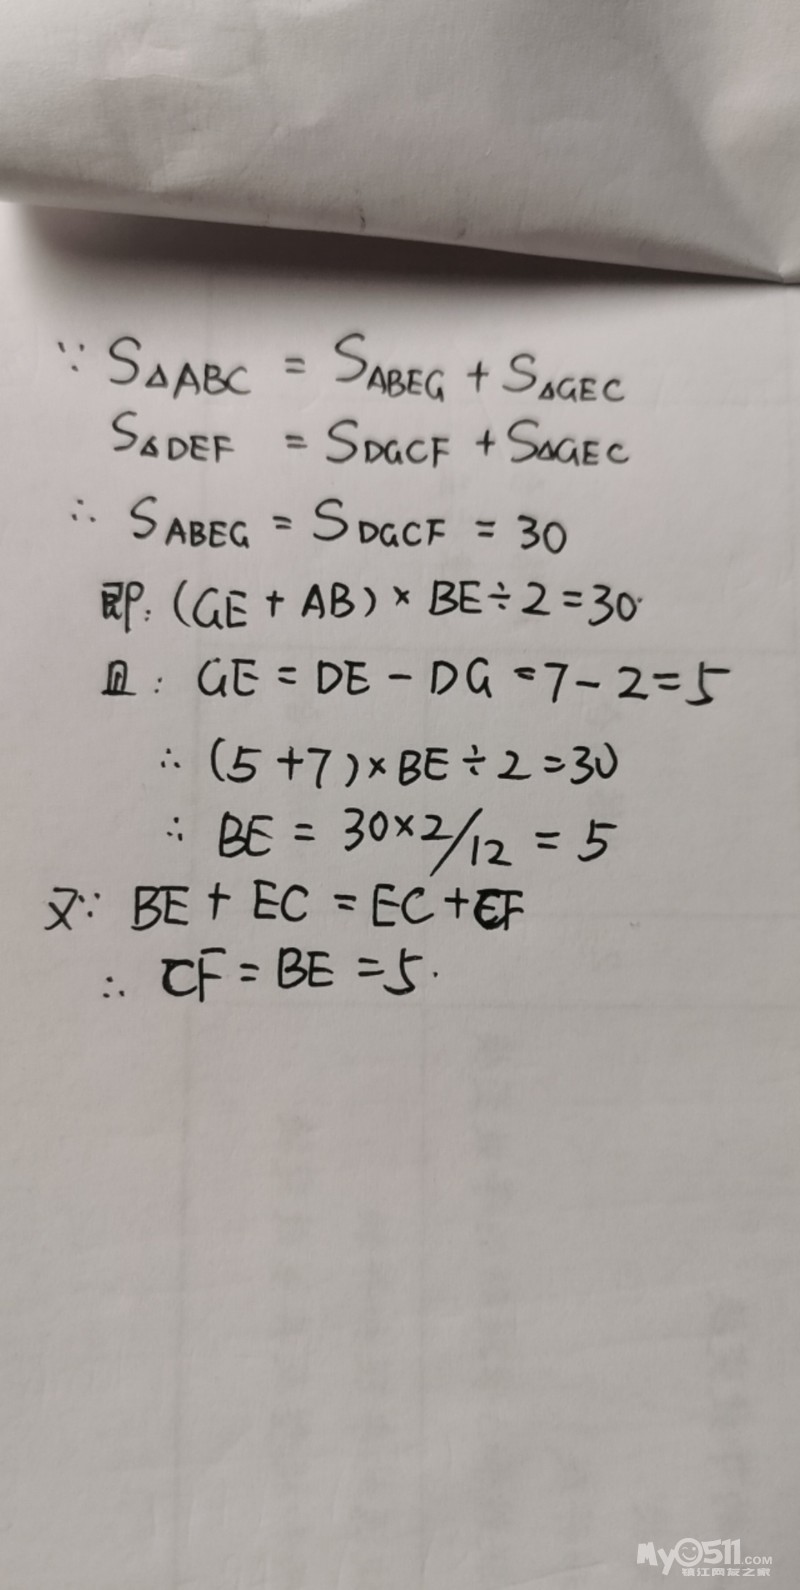 ∵ S△ABC = SABEG + S△GEC
S△DEF = SDGCF + S△GEC
∴ SABEG = SDGCF = 30
即: (GE + AB) × BE ÷ 2 = 30
且: GE = DE - DG = 7 - 2 = 5
∴ (5 + 7) × BE ÷ 2 = 30
∴ BE = 30×2/12 = 5
又∵ BE + EC = EC + CF
∴ CF = BE = 5.
My0511.COM
镇江网友之家